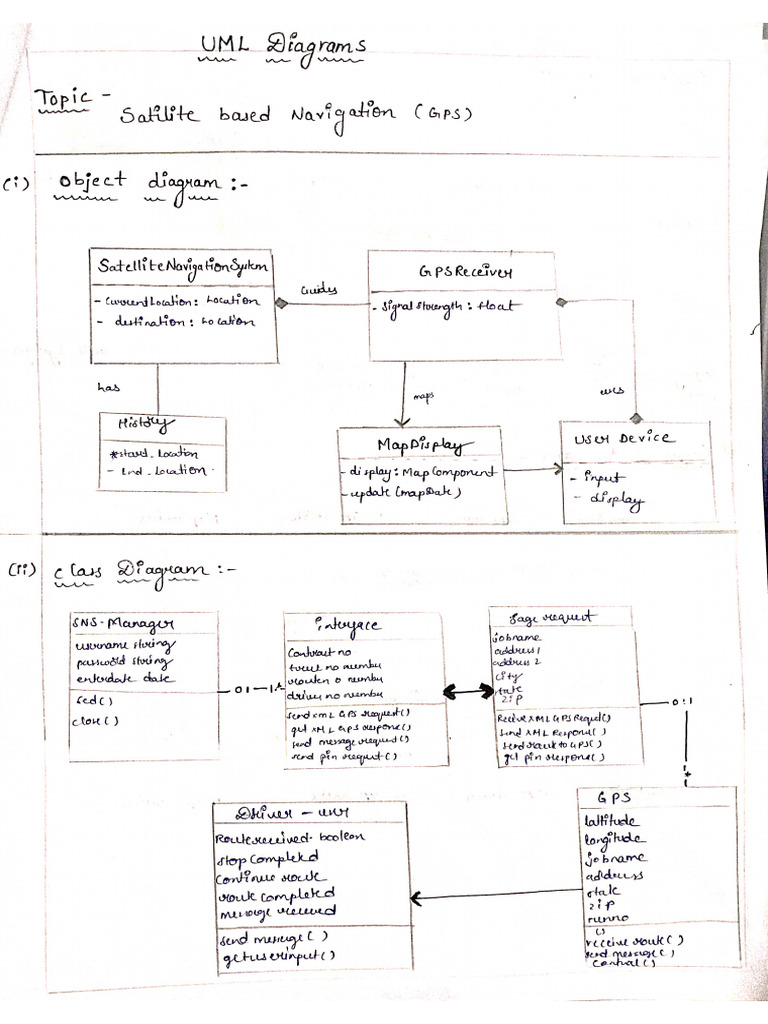 UML Diagrams
Topic -
Satilite based Navigation (GPS)
(i) Object diagram :-
SatelliteNavigationSystem
- CurrentLocation : Location
- destination : Location
Guides
GPSReceiver
- Signal Strength : float
has
maps
uses
History
*start_location
- End_location
MapDisplay
- display : MapComponent
- update (mapDate)
User Device
- input
- display
(ii) Class Diagram :-
SNS-Manager
username string
password string
enterdate date
close ( )
01 — 1*
interface
Contract no
driver no number
send xml GPS request ( )
get XML GPS response ( )
send message request ( )
send pin request ( )
request
jobname
address 1
address 2
city
state
zip
Receive XML GPS Request ( )
send XML Response ( )
send route to GPS ( )
get pin response ( )
0:1
1
*
GPS
lattitude
longitude
jobname
address
state
zip
runno
( )
receive route ( )
send message ( )
Control ( )
Driver - user
Route received - boolean
stop Completed
Continue route
route completed
message received
send message ( )
getuserinput ( )